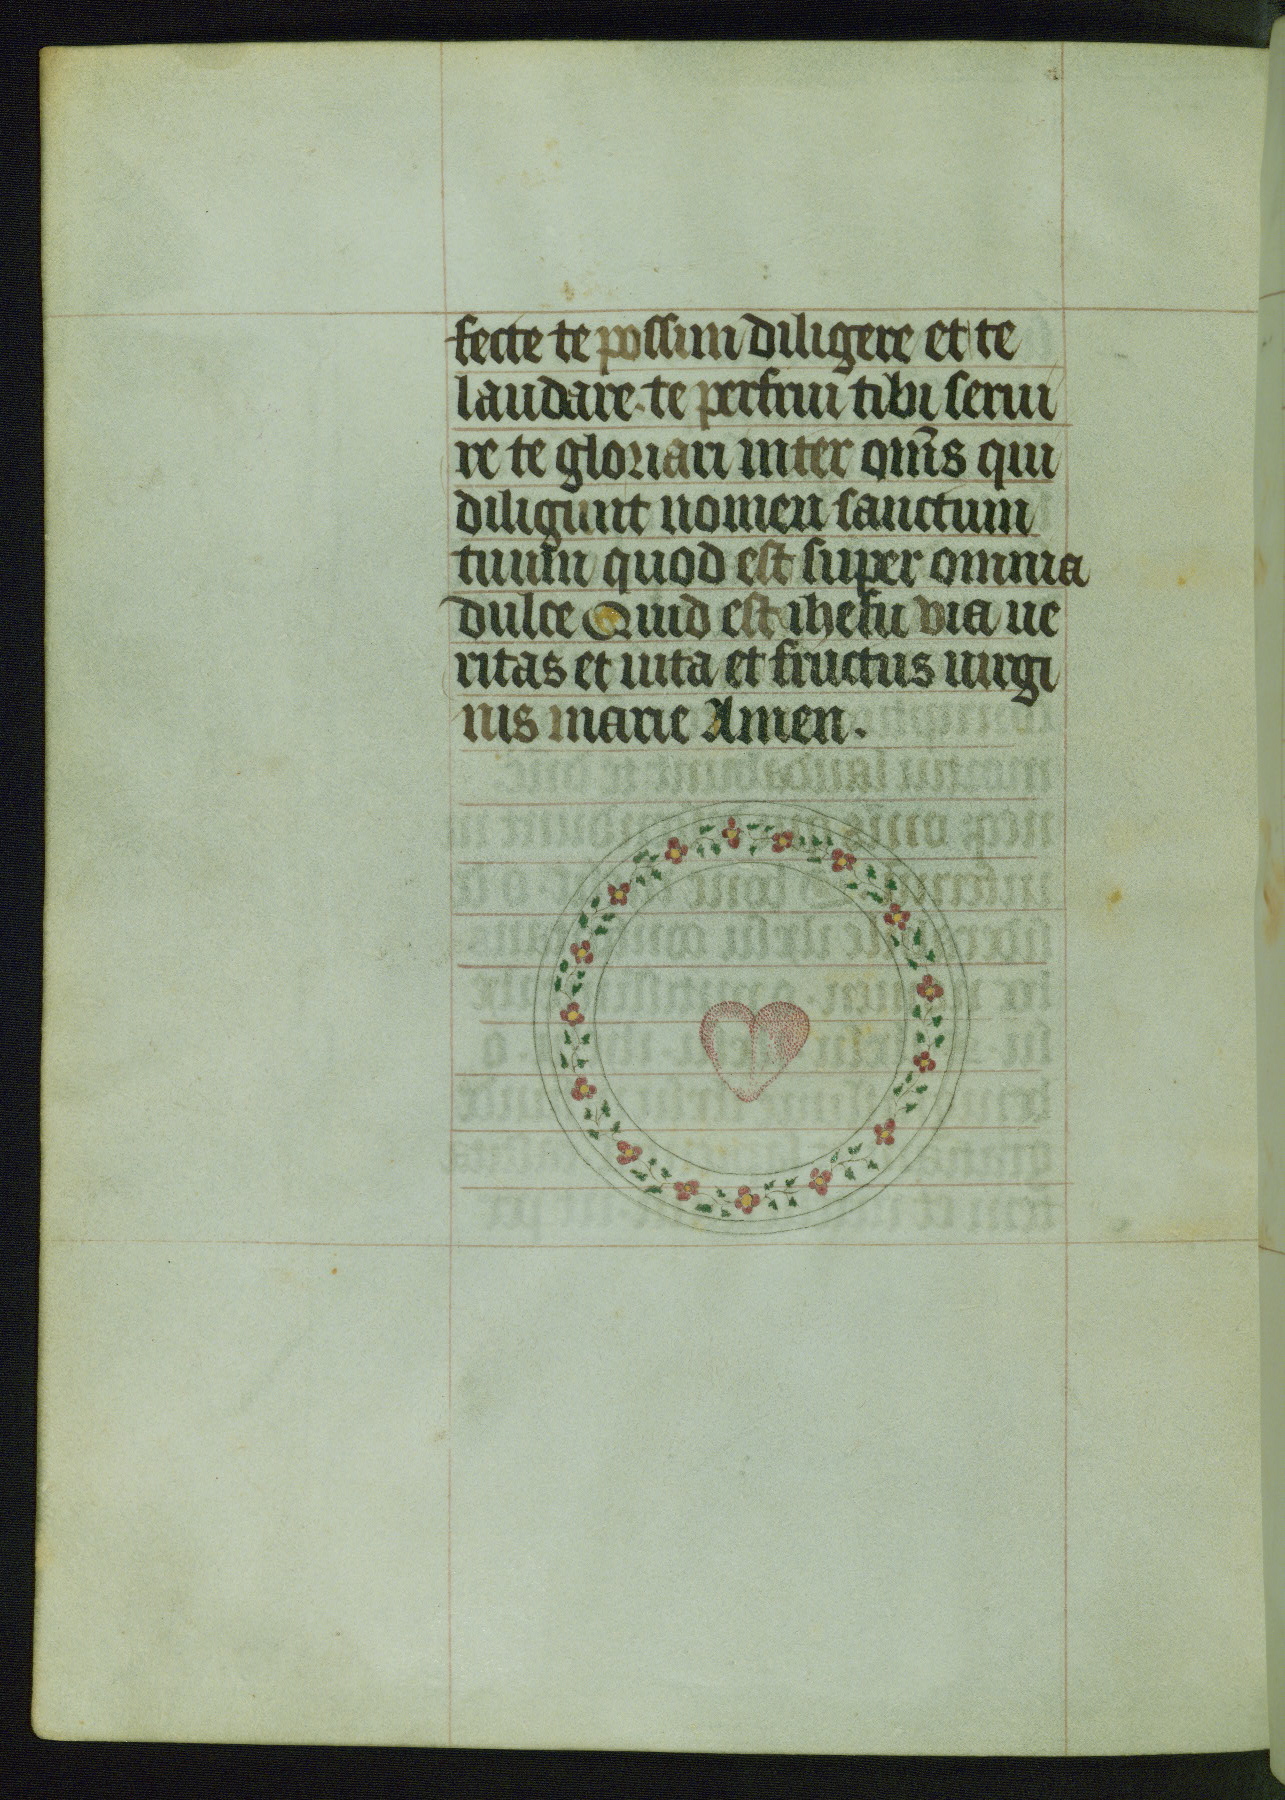 fecte te possim diligere et te
laudare. te perfrui tibi serui
re te gloriari inter om̄s qui
diligunt nomen sanctum
tuum quod est super omnia
dulce Quid est ihesu via ue
ritas et uita et fructus uirgi
nis marie Amen.